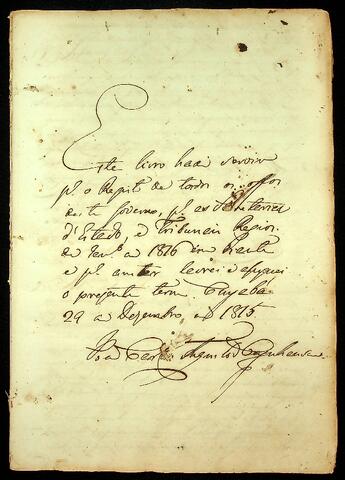 Este livro hade servir
pª o Registo de todos os offos
deste Governo, pª as Secretarias
d'Estado, e Tribunais Regios
de Janrº de 1816 em diante
e pª constar lavrei e assignei
o prezente termo Cuyabá
29 de Dezembro, de 1815
João Carlos Augusto d'Oeynhausen